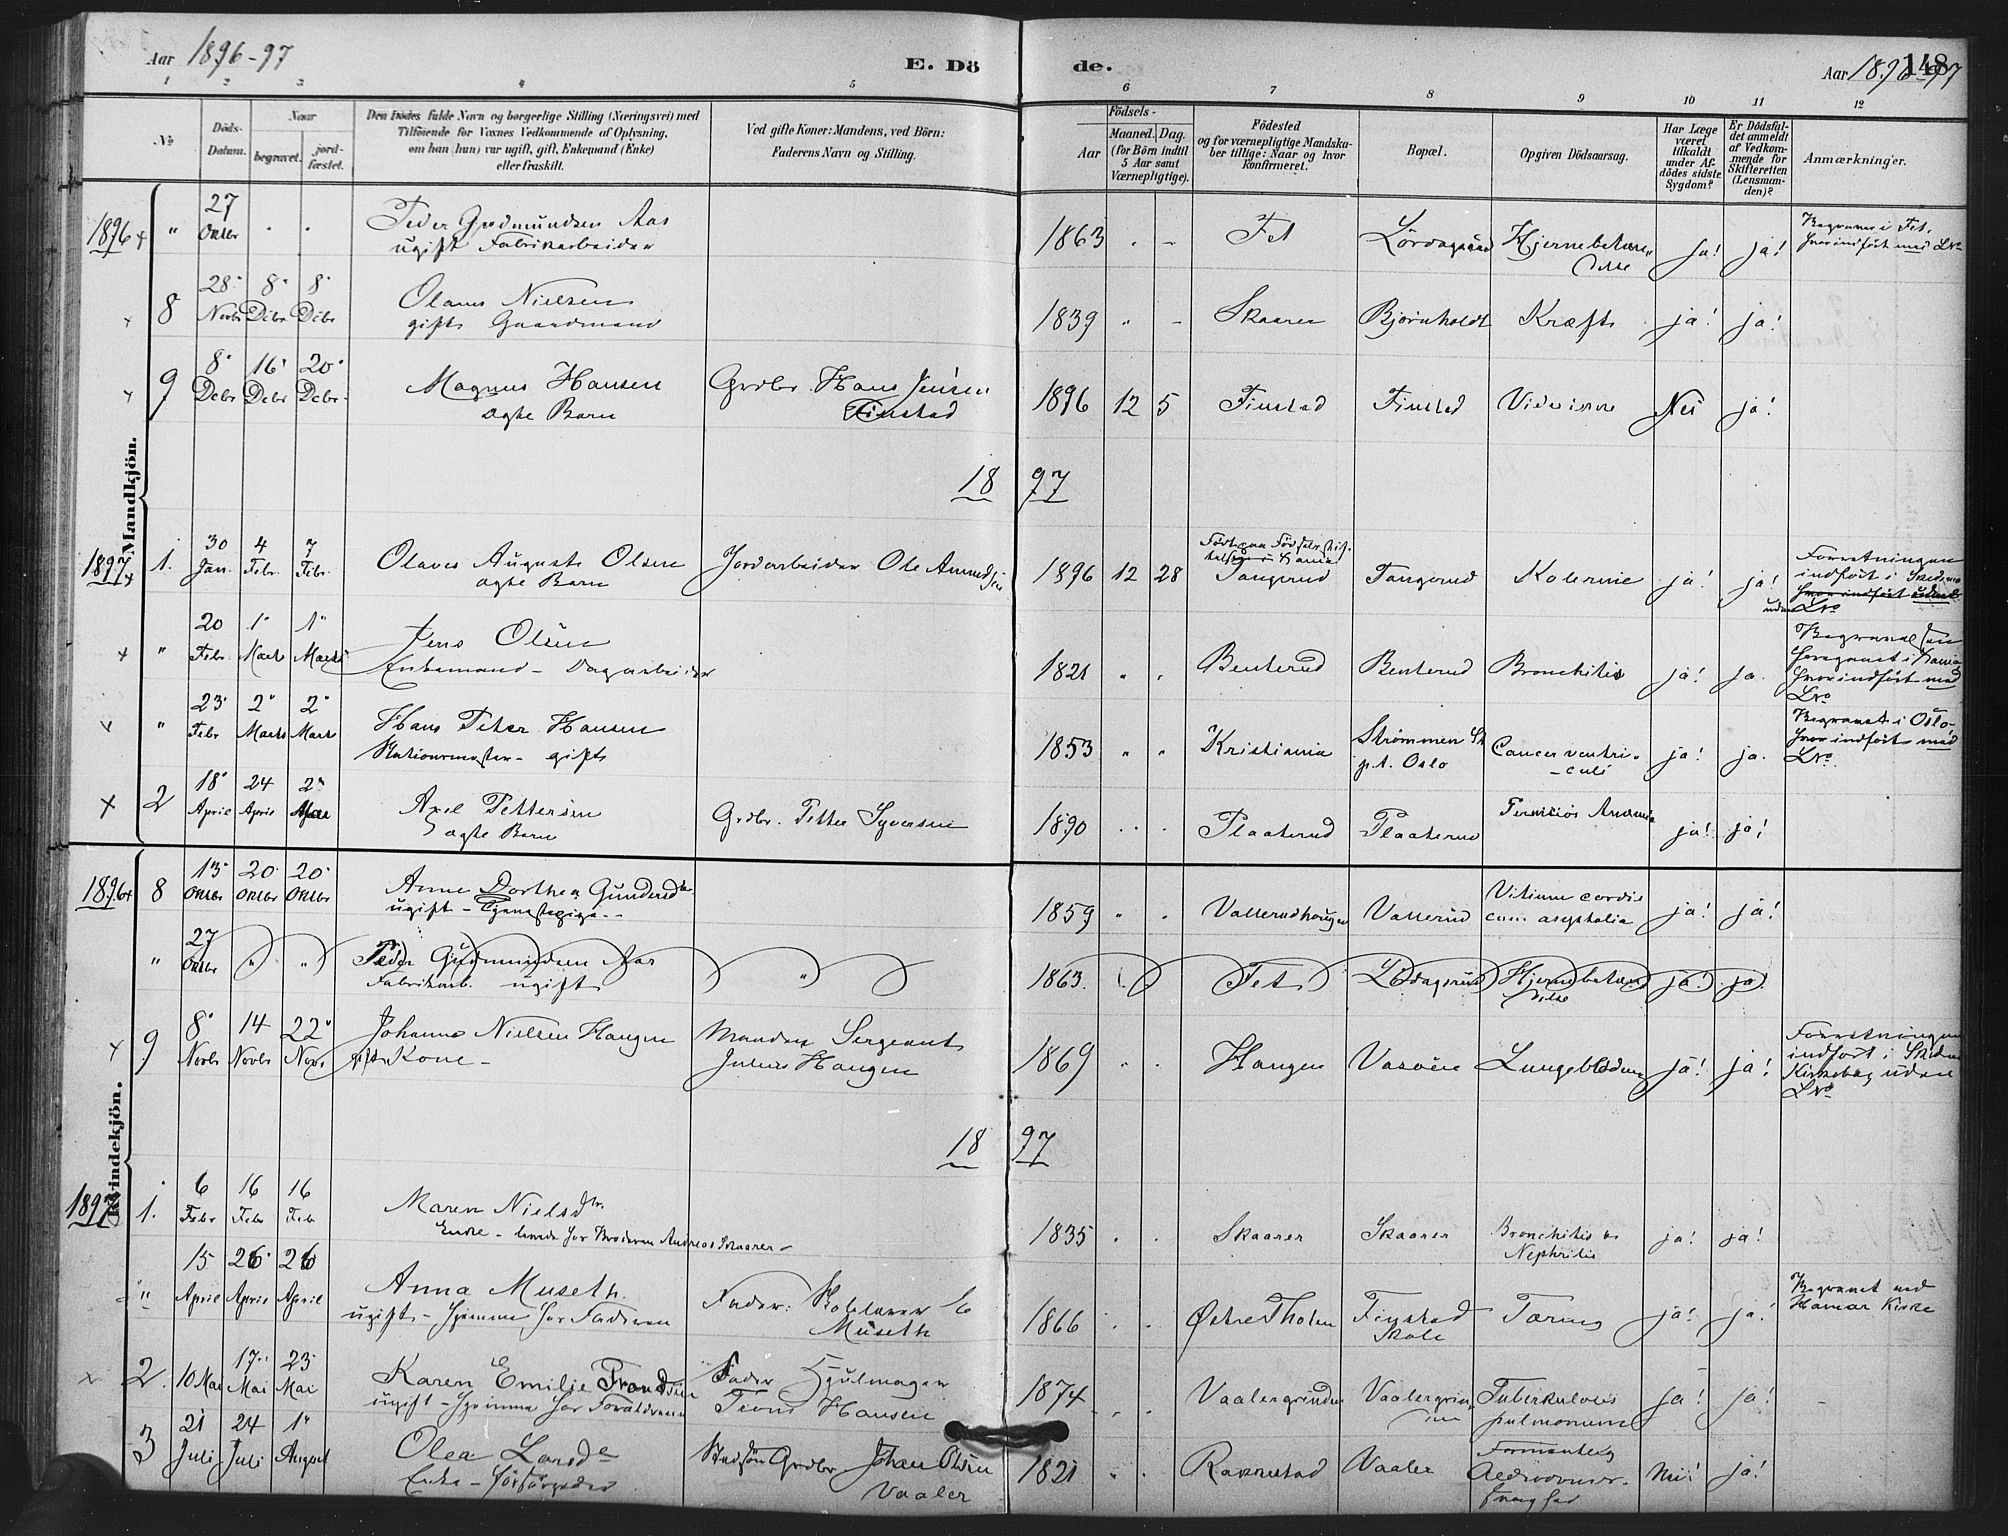 Aar 1896-97
E. Dö
de.
Aar 1896-97
148
1 2 3 4 5 6 7 8 9 10 11 12
No
Döds-
Datum.
Naar
begravet.
jord-
fæstet.
Den Dödes fulde Navn og borgerlige Stilling (Næringsvei) med
Tilföiende for Voxnes Vedkommende af Oplysning,
om han (hun) var ugift, gift, Enkemand (Enke)
eller fraskilt.
Ved gifte Koner: Mandens, ved Börn:
Faderens Navn og Stilling.
Födsels-
Aar
Maaned. Dag.
(for Börn indtil
5 Aar samt
Værnepligtige).
Födested
og for værnepligtige Mandska-
ber tillige: Naar og hvor
konfirmeret.
Bopæl.
Opgiven Dödsaarsag.
Har Læge
været
tilkaldt
under Af-
dödes sidste
Sygdom?
Er Dödsfal-
det anmeldt
af Vedkom-
mende for
Skifteretten
(Lensman-
den)?
Anmærkninger.
Mandkjön.
1896 + " 27 Oktbr . . Peder Gudmundsen Aas
ugift Fabrikarbeider
1863 . - Fet Hjernebetæn-
delse ja! ja! Begravet i Fet,
hvor indfört med LNo
+ 8 28 Novbr 8 Debr 8 Debr Olaus Nielsen
gift Gaardmand
1839 " - Skaarer Bjørnholdt Kræft ja! ja!
9 8 Debr 16 Debr 20 Debr Magnus Hansen
ægte Barn
Grdbr. Hans Jensen
Finstad
1896 12 5 Finstad Finstad Nei ja!
18 97
1897 + 1. 30 Jan. 4 Febr. 7 Febr. Olaves August Olsen
ægte Barn
Jordarbeider Ole Amundsen
1896 12 28 Födt paa Födselsstif-
telsen i Kania
Tangerud Tangerud Kolerine ja! ja! Forretningen
indfört i
hvor indfört uden
uden LNo
+ " 20 Febr. 1 Marts 1 Marts Jens Olsen
Enkemand - Dagarbeider
1821 " . Benterud Benterud Bronchitis ja! ja. Begravet
hvor indfört med
LNo
" 23 Febr 2 Marts 2 Marts Hans Peter Hansen
Stationsmester - gift
1853 " " Kristiania Strømmen St.
p.t. Oslo Cancer ventri-
culi ja! ja. Begravet i Oslo
hvor indfört med
LNo
+ 2 18 April 24 April 2 Axel Pettersen
ægte Barn
Grdbr. Petter Syversen
1890 . . . Plaaterud Plaaterud Perniciös Anæmie ja! ja!
Kvindekjön.
1896 + 8 13 Oktbr 20 Oktbr 20 Oktbr Anne Dorthea Gundersdtr
ugift - Tjenestepige -
1859 " . Vallerudhaugen Vallerud Vitium cordis
cum ja! ja!
" 27 Oktbr " " Peder Gudmundsen Aas
Fabrikarb. ugift
"
1863 Fet Hjernebetænd
delse ja! ja.
+ 9 8 Novbr 14 Novbr 22 Novb Johanne Nielsen Haugen
gift Kone -
Manden Sergeant
Julius Haugen
1869 . . Haugen Lungeblödning ja! ja! Forretningen
indfört i
Kirkebog uden
LNo
18 97
1897 1. 6 Febr 16 Febr 16 Feb Maren Nielsdtr.
Enke - levede hos Broderen Andreas Skaarer -
1835 . . Skaarer Skaarer Bronchitis &
Nephritis ja! ja!
" 15 April 26 April 26 April Anna Museth.
ugift - hjemme hos Faderen
Fader: Skolelærer
Museth
1866 . . Østre Tholen Finstad
Skole Tæring ja! ja! Begravet ved
Hamar Kirke
+ 2. 10 Mai 17 Mai 23 Mai Karen Emilie Trondsen
ugift - hjemme hos Forældrene
Fader Hjulmager
Trond Hansen
1874 . . Vaalergrinden Vaalergrin-
den Tuberkulosis
pulmonum ja! ja!
3 21 Juli 24 Juli 1 August Olea Larsdr
Enke - forsörgedes
Stedsön Grdbr Johan Olsen
Vaaler
1821 " . Rakkestad Vaaler Formentlig
Alderdoms-
svaghed nei! ja!